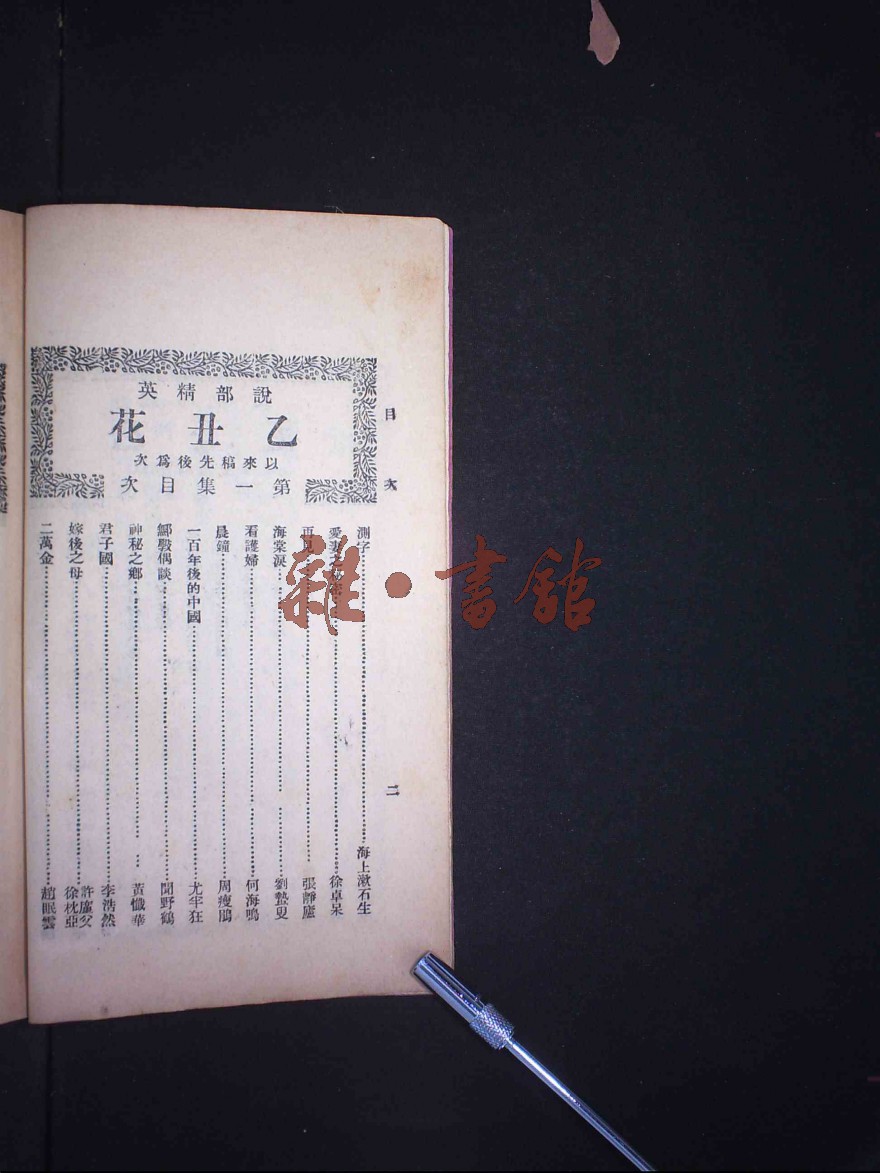 說部精英
乙丑花
以來稿先後爲次
第一集目次
目次
二
測字 海上漱石生
愛妻之秘密 徐卓呆
再見 張靜廬
海棠淚 劉蟄叟
看護婦 何海鳴
晨鐘 周瘦鵑
一百年後的中國 尤半狂
鄮礜偶談 聞野鶴
神秘之鄉 黃懺華
君子國 李浩然
嫁後之母 許廑父 徐枕亞
二萬金 趙眠雲
雜·書館